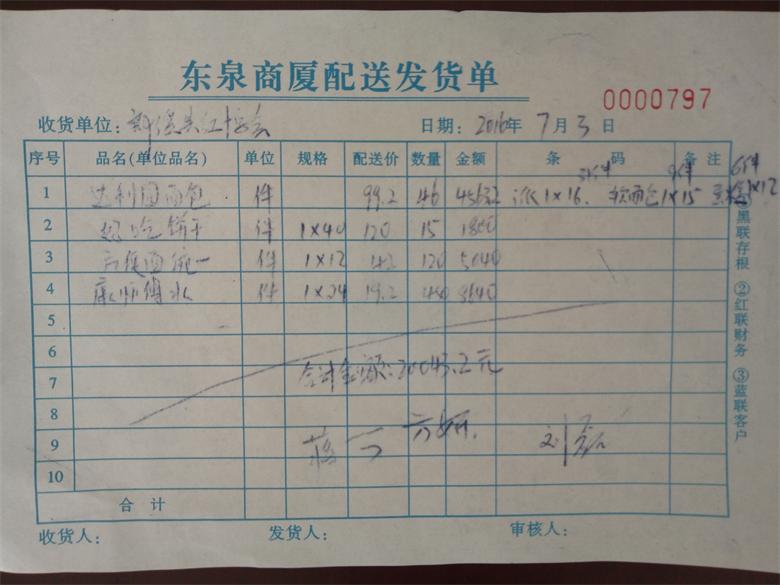 东泉商厦配送发货单
0000797
收货单位: 红十字会 日期: 2016年 7月 3日
序号 品名(单位品名) 单位 规格 配送价 数量 金额 条 码 备 注
1 达利园面包 件 99.2 46 4563.2 派1×16. 软面包1×15 1×12
2 好吃饼干 件 1×40 120 15 1800
3 件 1×12 42 120 5040
4 康师傅水 件 1×24 19.2 450 8640
5
6
7 合计金额:20043.2元
8
9
10
合 计
收货人: 发货人: 审核人:
黑联存根 ②红联财务 ③蓝联客户